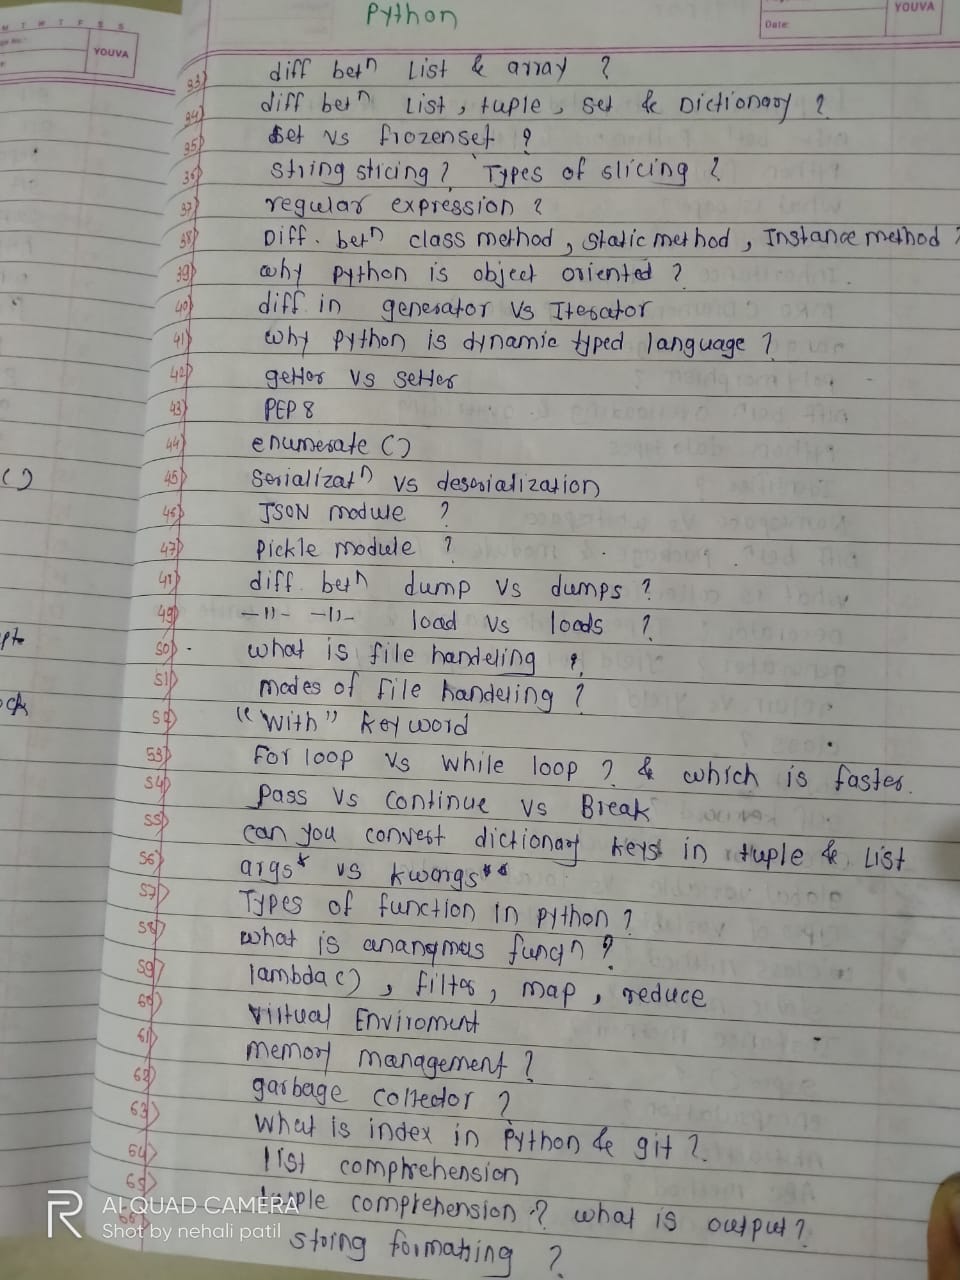 M T W T F S S
YOUVA
Python
Date:
YOUVA
33) diff betn List & array ?
34) diff betn List, tuple, set & Dictionary ?
35) Set vs frozenset ?
36) String slicing ? Types of slicing ?
37) regular expression ?
38) Diff. betn class method, static method, Instance method ?
39) why python is object oriented ?
40) diff in generator vs Iterator
41) why python is dynamic typed language ?
42) getter vs setter
43) PEP 8
44) enumerate ()
45) Serializatn vs deserialization
46) JSON module ?
47) Pickle module ?
48) diff. betn dump vs dumps ?
49) -"- -"- load vs loads ?
50) what is file handeling ?
51) modes of file handeling ?
52) "with" keyword
53) For loop vs while loop ? & which is faster.
54) pass vs continue vs Break
55) can you convert dictionary keys in tuple & List
56) args* vs kwargs**
57) Types of function in python ?
58) what is ananqmus funqn ?
59) lambda(), filter, map, reduce
60) virtual Enviroment
61) memory management ?
62) garbage collector ?
63) What is index in Python & git ?
64) list comphrehension
65) comprehension ? what is output ?
66) string formating ?
()
AI QUAD CAMERA
Shot by nehali patil